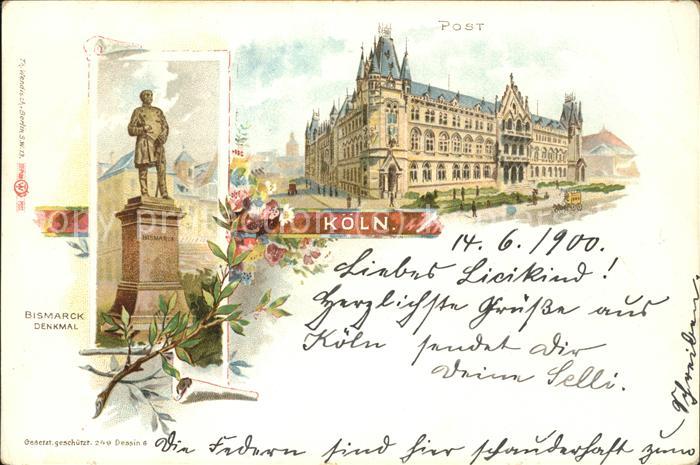 POST
Th. Wendisch, Berlin S.W. 13.
BISMARCK
KÖLN.
14. 6. 1900.
Liebes Licikind!
Herzlichste Grüße aus
Köln sendet Dir
Deine Selli.
BISMARCK
DENKMAL
Gesetzt. geschützt. 249 Dessin. 6
Die Federn sind hier schauderhaft zum
Schreiben